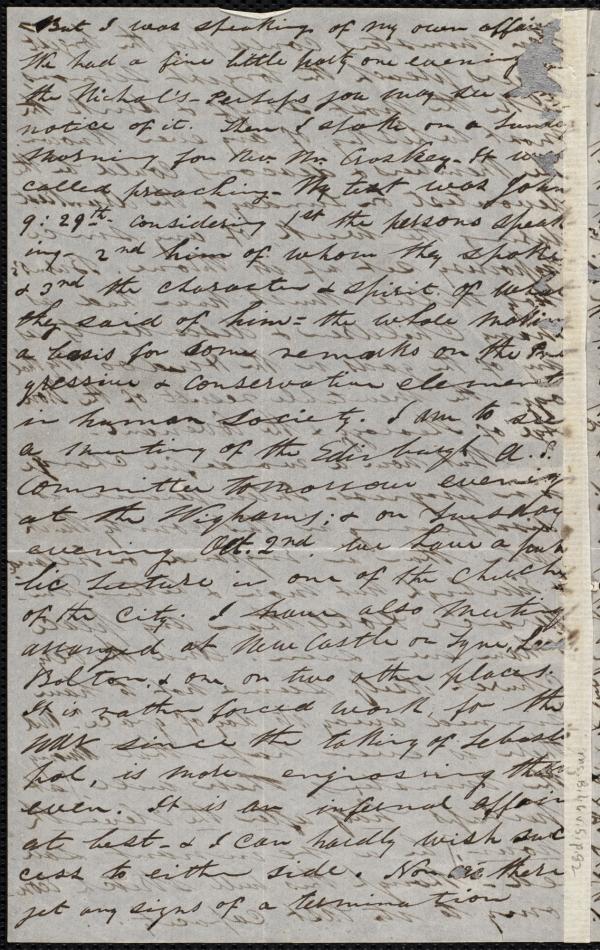 But I was speaking of my own affairs
We had a fine little party one evening
the Nichol's - Perhaps you may see
notice of it. Then I spoke on a Sunda
morning for Rev. Mr. Croskey - It was
called preaching - My text was John
9: 29th - considering 1st the persons speak
ing - 2nd him of whom they spoke
& 3rd the character & spirit of what
they said of him = the whole making
a basis for some remarks on the Pro
gressive & conservative element
in human society. I am to see
a meeting of the Edinburgh A. S.
Committee tomorrow evening
at the Wighams; & on Tuesday
evening Oct. 2nd. we have a pub
lic lecture in one of the church
of the city. I have also meeting
arranged at New Castle on Tyne, Lee
Bolton, & one or two other places.
It is rather forced work, for the
war since the taking of Sebasto
pol, is more engrossing than
ever. It is an infernal affair
at best - & I can hardly wish suc
cess to either side. Nor are there
yet any signs of a termination
Ms. B.1.6 v.5, p. 92